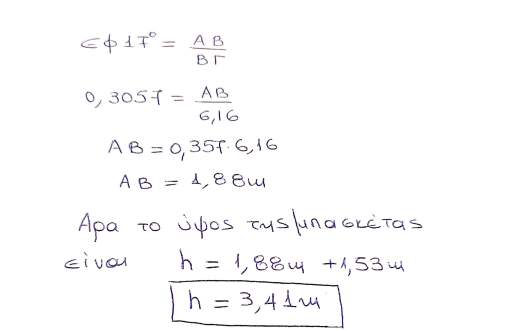 εφ17° = ΑΒ/ΒΓ
0,3057 = ΑΒ/6,16
ΑΒ = 0,357·6,16
ΑΒ = 1,88m
Αρα το ύψος της μπασκέτας
είναι h = 1,88m + 1,53m
h = 3,41m